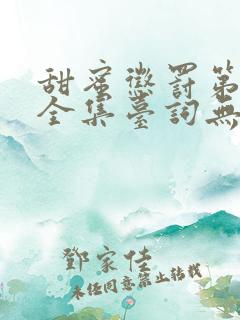 甜蜜懲罰第
全集臺詞無
鄧家佳
未经同意禁止转载